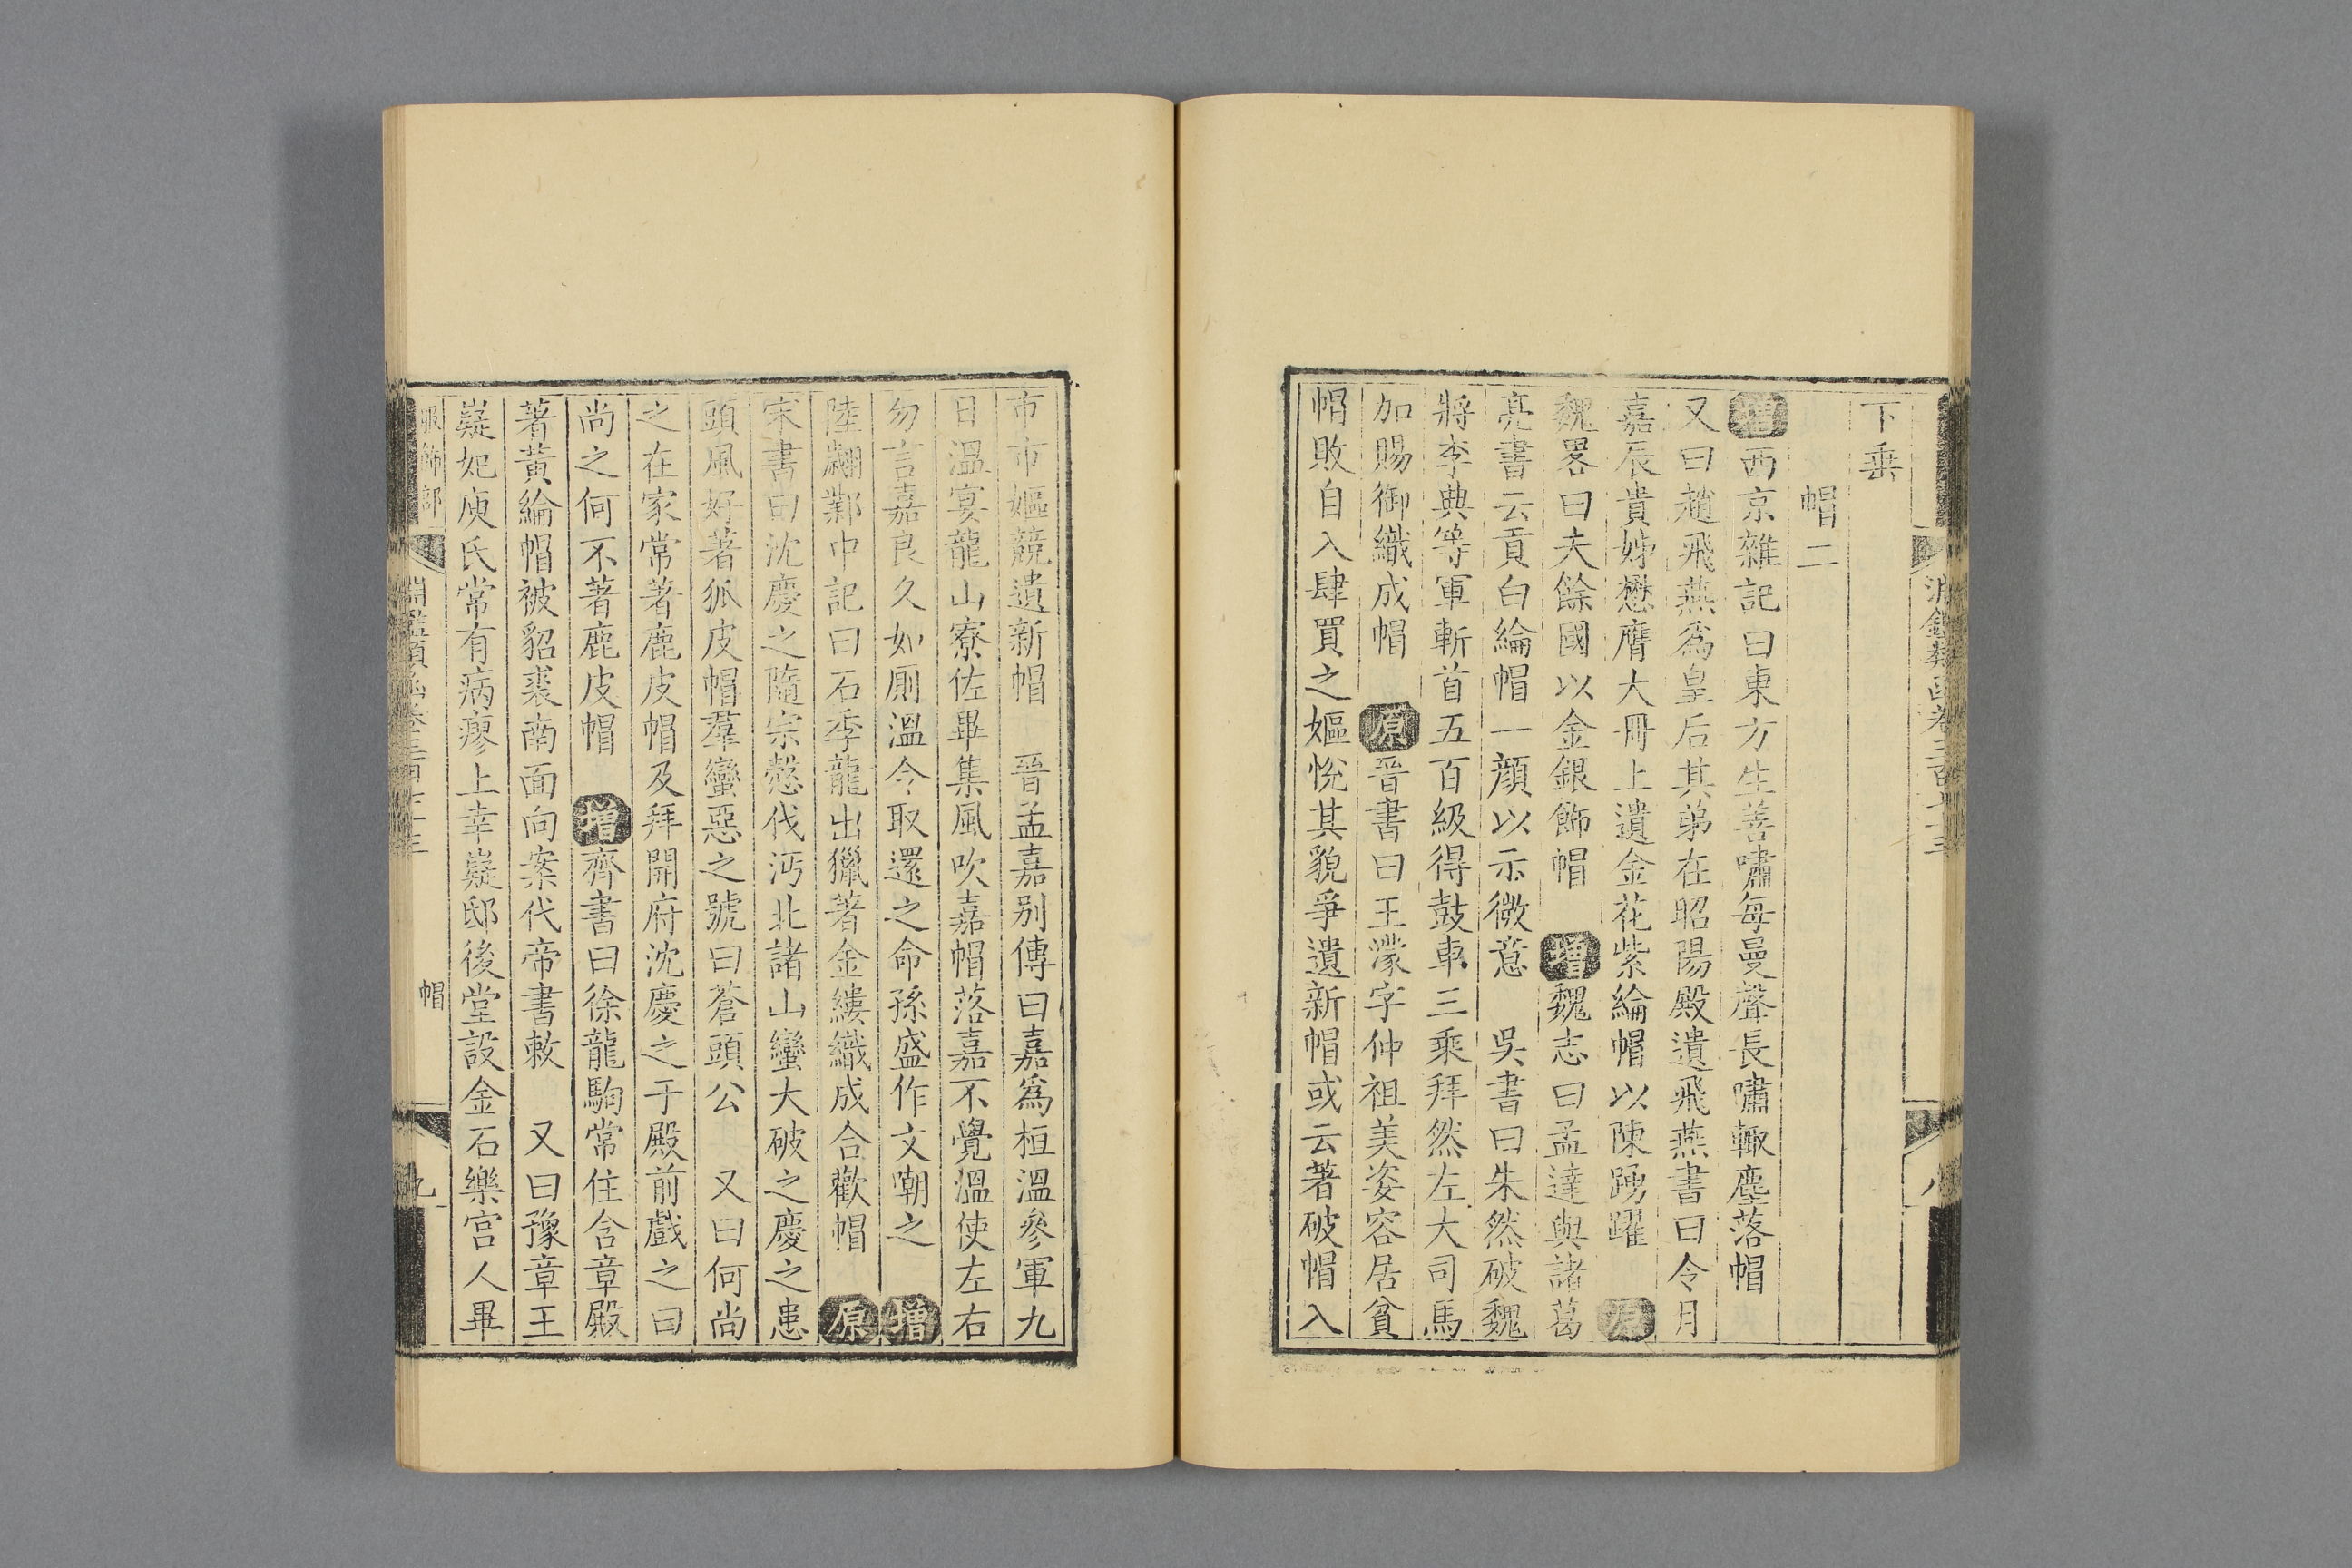 下垂
帽二
增西京雜記曰東方生善嘯每曼聲長嘯輙塵落帽
又曰趙飛燕爲皇后其弟在昭陽殿遺飛燕書曰今月
嘉辰貴姊懋膺大冊上遺金花紫綸帽以陳踴躍　原
魏畧曰夫餘國以金銀飾帽　增魏志曰孟達與諸葛
亮書云貢白綸帽一顔以示微意　吳書曰朱然破魏
將李典等軍斬首五百級得鼓車三乘拜然左大司馬
加賜御織成帽　原晉書曰王濛字仲祖美姿容居貧
帽敗自入肆買之嫗悅其貌爭遺新帽或云著破帽入
市市嫗競遺新帽　晉孟嘉别傳曰嘉爲桓溫參軍九
日溫宴龍山寮佐畢集風吹嘉帽落嘉不覺溫使左右
勿言嘉良久如厠溫令取還之命孫盛作文嘲之　增
陸翽鄴中記曰石季龍出獵著金縷織成合歡帽　原
宋書曰沈慶之隨宗慤伐沔北諸山蠻大破之慶之患
頭風好著狐皮帽羣蠻惡之號曰蒼頭公　又曰何尚
之在家常著鹿皮帽及拜開府沈慶之于殿前戲之曰
尚之何不著鹿皮帽　增齊書曰徐龍駒常住含章殿
著黃綸帽被貂裘南面向案代帝書敕　又曰豫章王
嶷妃庾氏常有病瘳上幸嶷邸後堂設金石樂宮人畢
服飾部
帽
九